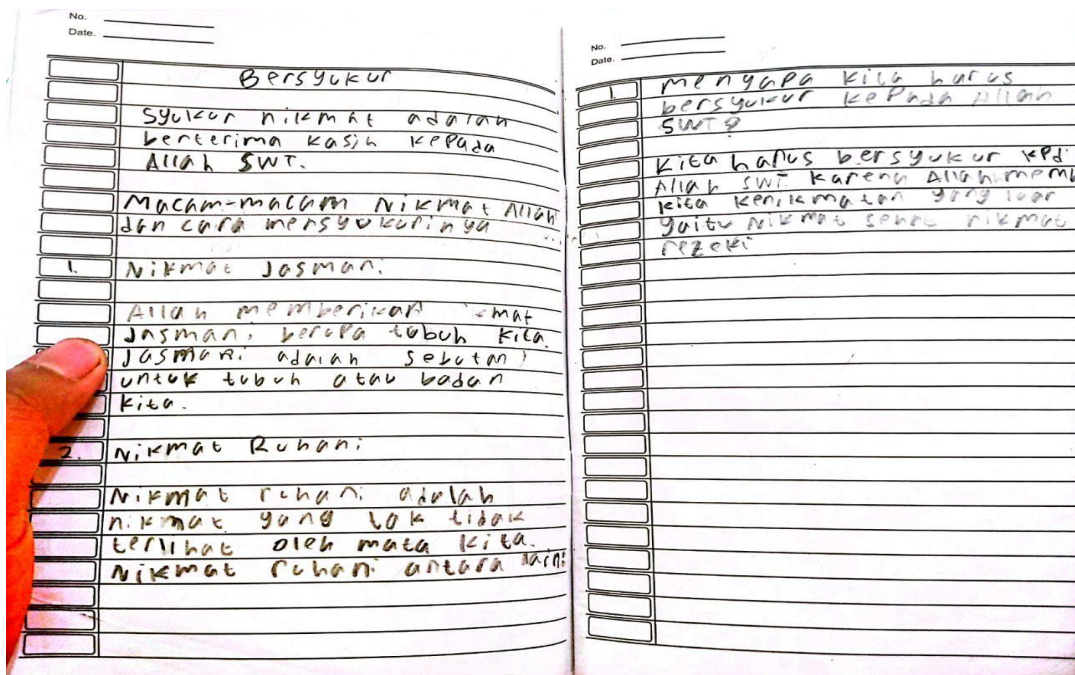 No.
Date.
Bersyukur
Syukur nikmat adalah
berterima kasih kepada
Allah SWT.
Macam-macam Nikmat Allah
dan cara mensyukurinya
1. Nikmat Jasmani
Allah memberikan
Jasmani berupa tubuh kita.
Jasmani adalah sebutan
untuk tubuh atau badan
kita.
2. Nikmat Ruhani
Nikmat ruhani adalah
nikmat yang tidak
terlihat oleh mata kita.
Nikmat ruhani antara lain:
No.
Date.
1 menyapa kita harus
bersyukur kepada Allah
SWT?
Kita harus bersyukur kpd
Allah SWT. Karena Allah
kita kenikmatan yang luar
yaitu nikmat sehat nikmat
rezeki